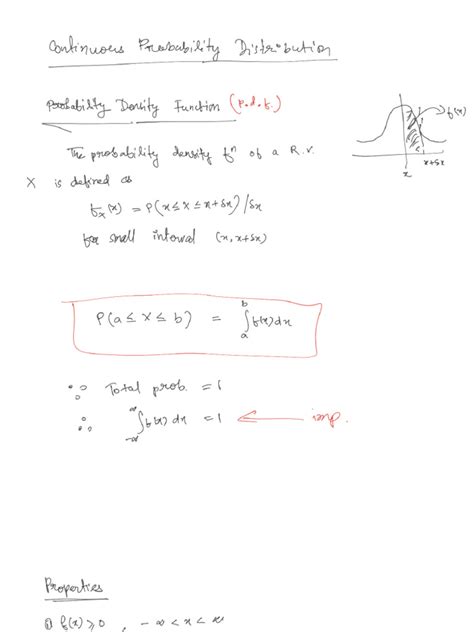 Continuous Probability Distribution
Probability Density Function (p.d.f.)
f(x)
x x+δx
The probability density fⁿ of a R.V.
X is defined as
fₓ(x) = P(x ≤ X ≤ x+δx)/δx
for small interval (x, x+δx)
P(a ≤ X ≤ b) = ∫ₐᵇ f(x) dx
∵ Total prob. = 1
∴ ∫₋∞^∞ f(x) dx = 1 ← imp.
Properties
① f(x) ≥ 0 , -∞ < x < ∞